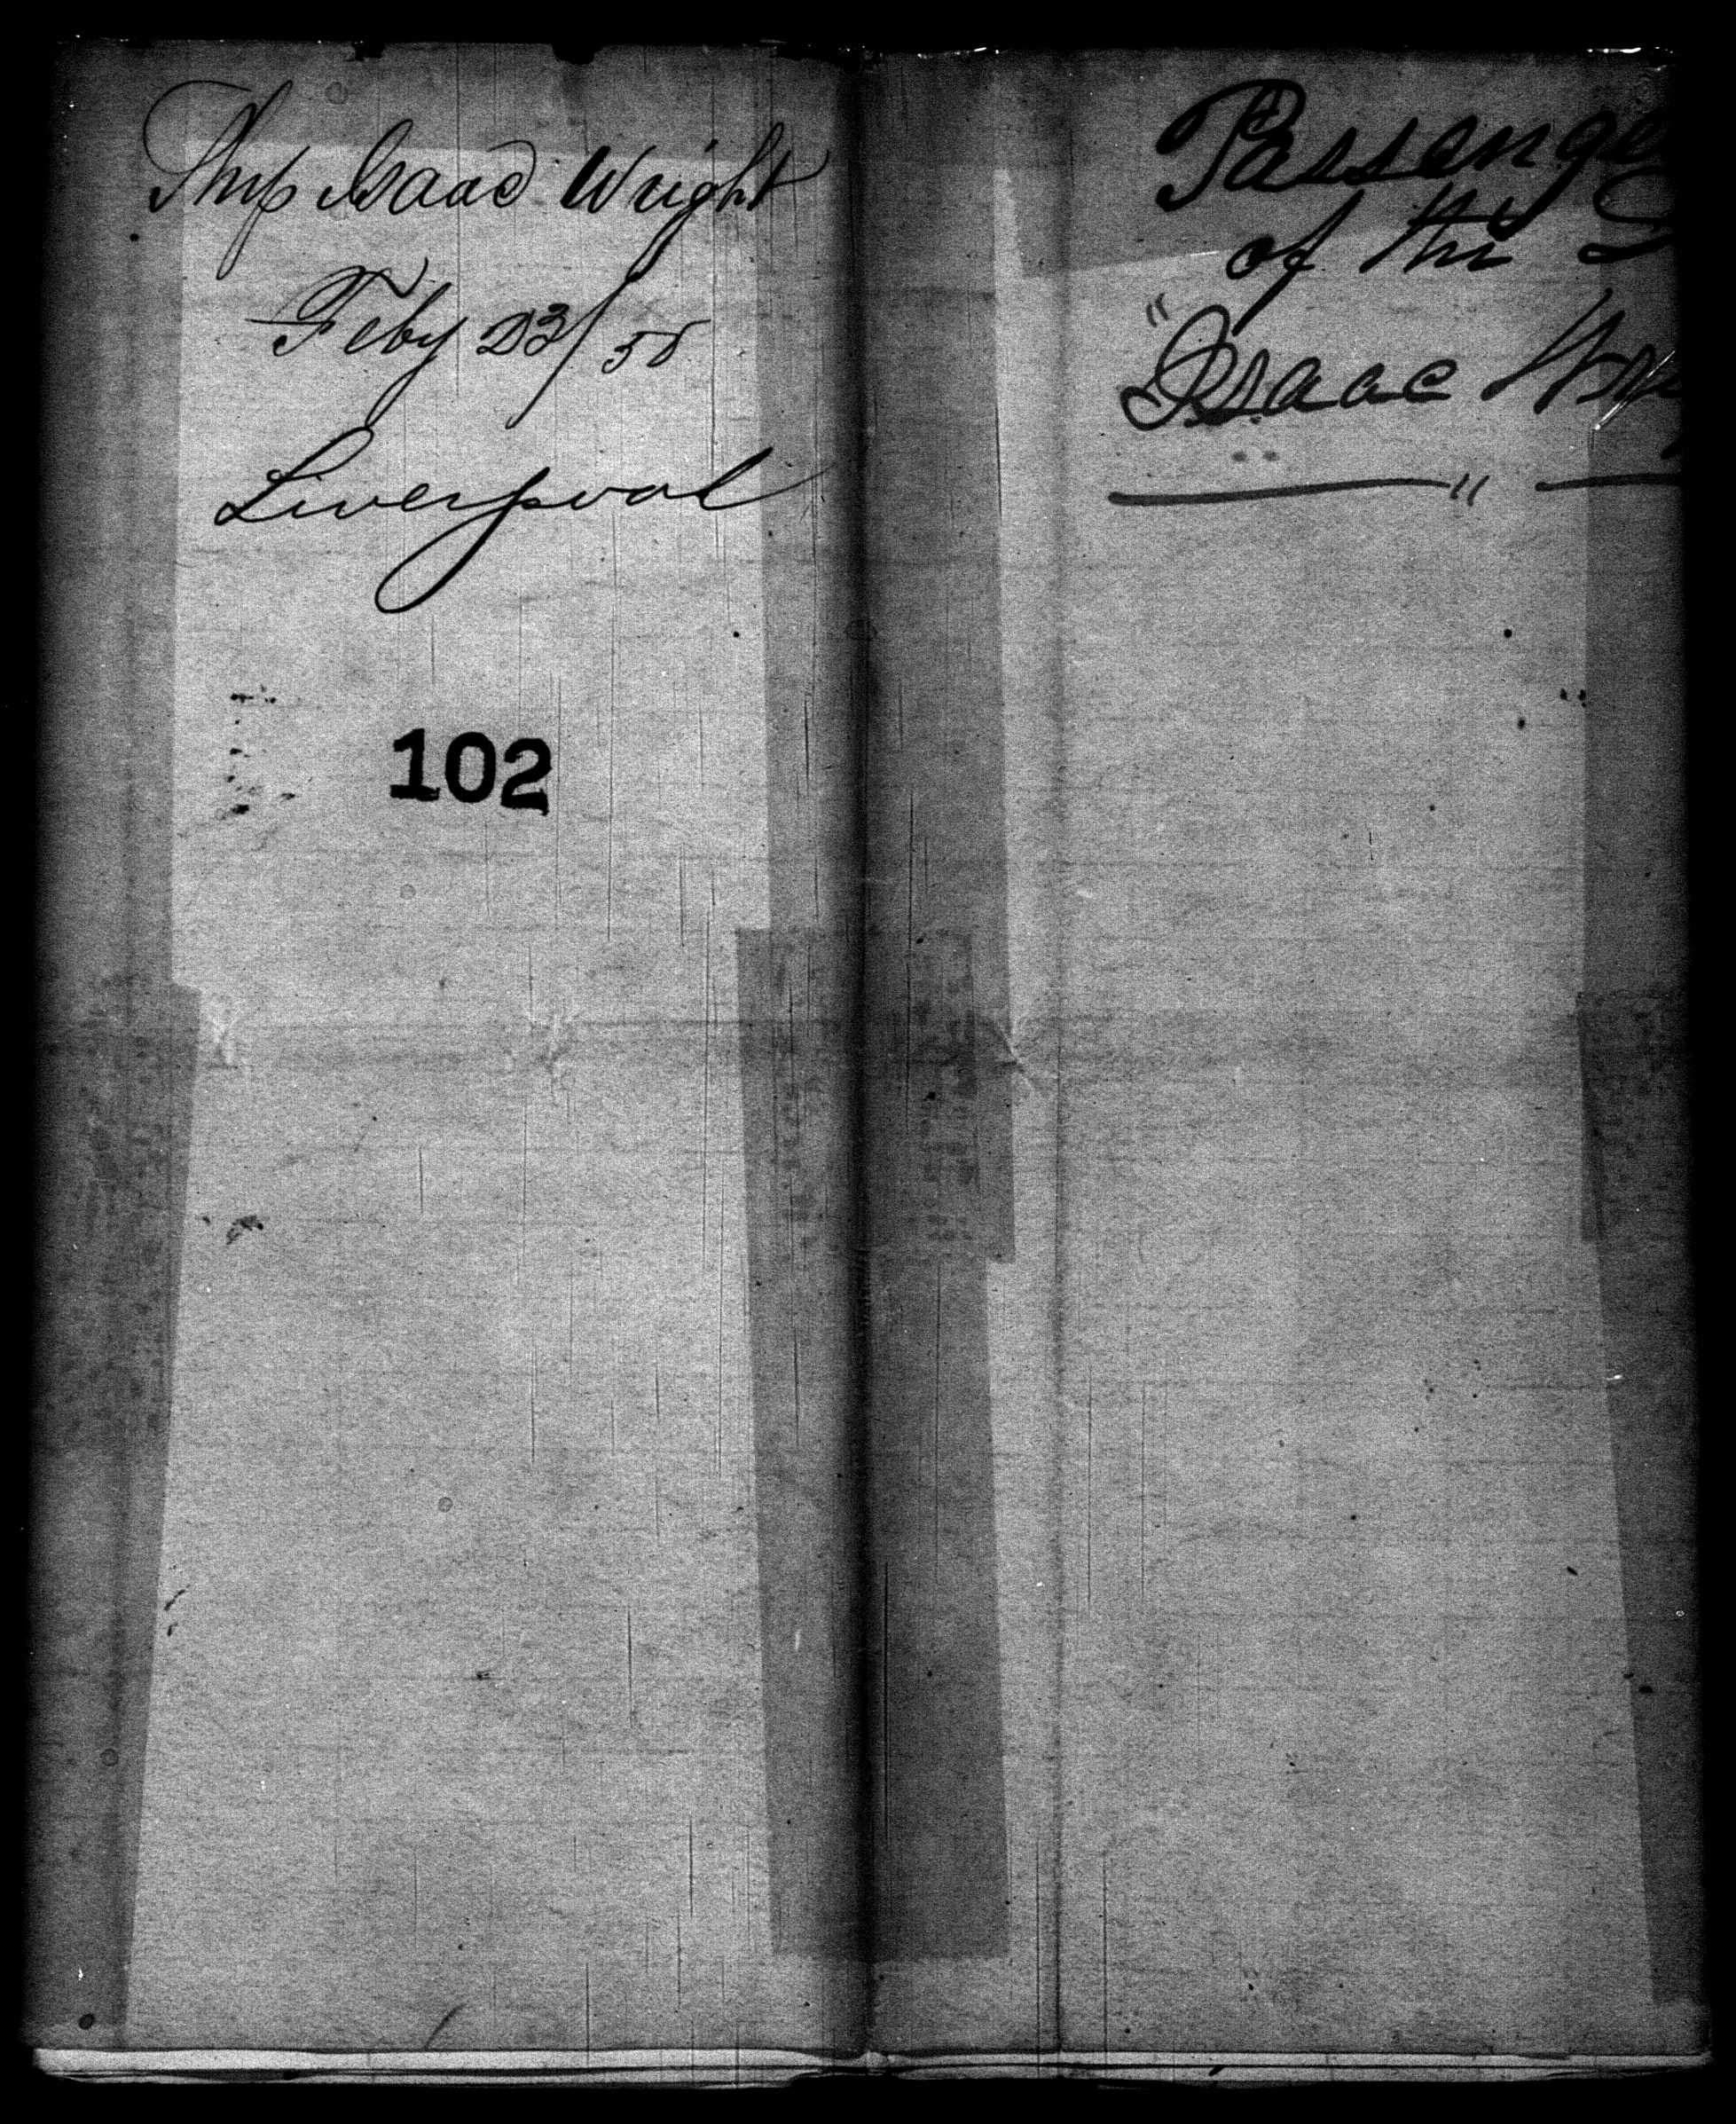 Ship Isaac Wright
Feby 23/50
Liverpool
102
Passenge
of the S
"Isaac Wri
"